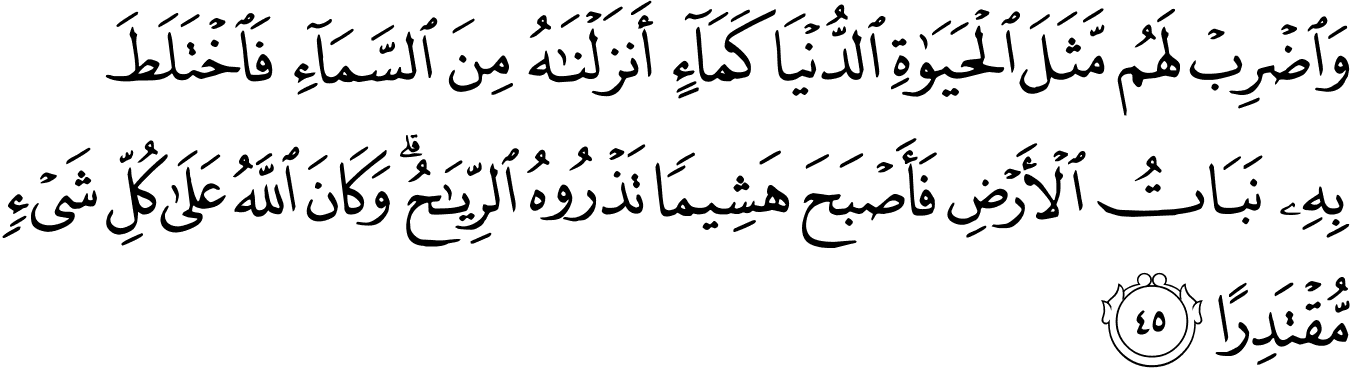 وَٱضْرِبْ لَهُم مَّثَلَ ٱلْحَيَوٰةِ ٱلدُّنْيَا كَمَآءٍ أَنزَلْنَـٰهُ مِنَ ٱلسَّمَآءِ فَٱخْتَلَطَ
بِهِۦ نَبَاتُ ٱلْأَرْضِ فَأَصْبَحَ هَشِيمًا تَذْرُوهُ ٱلرِّيَـٰحُ ۗ وَكَانَ ٱللَّهُ عَلَىٰ كُلِّ شَىْءٍ
مُّقْتَدِرًا ٤٥